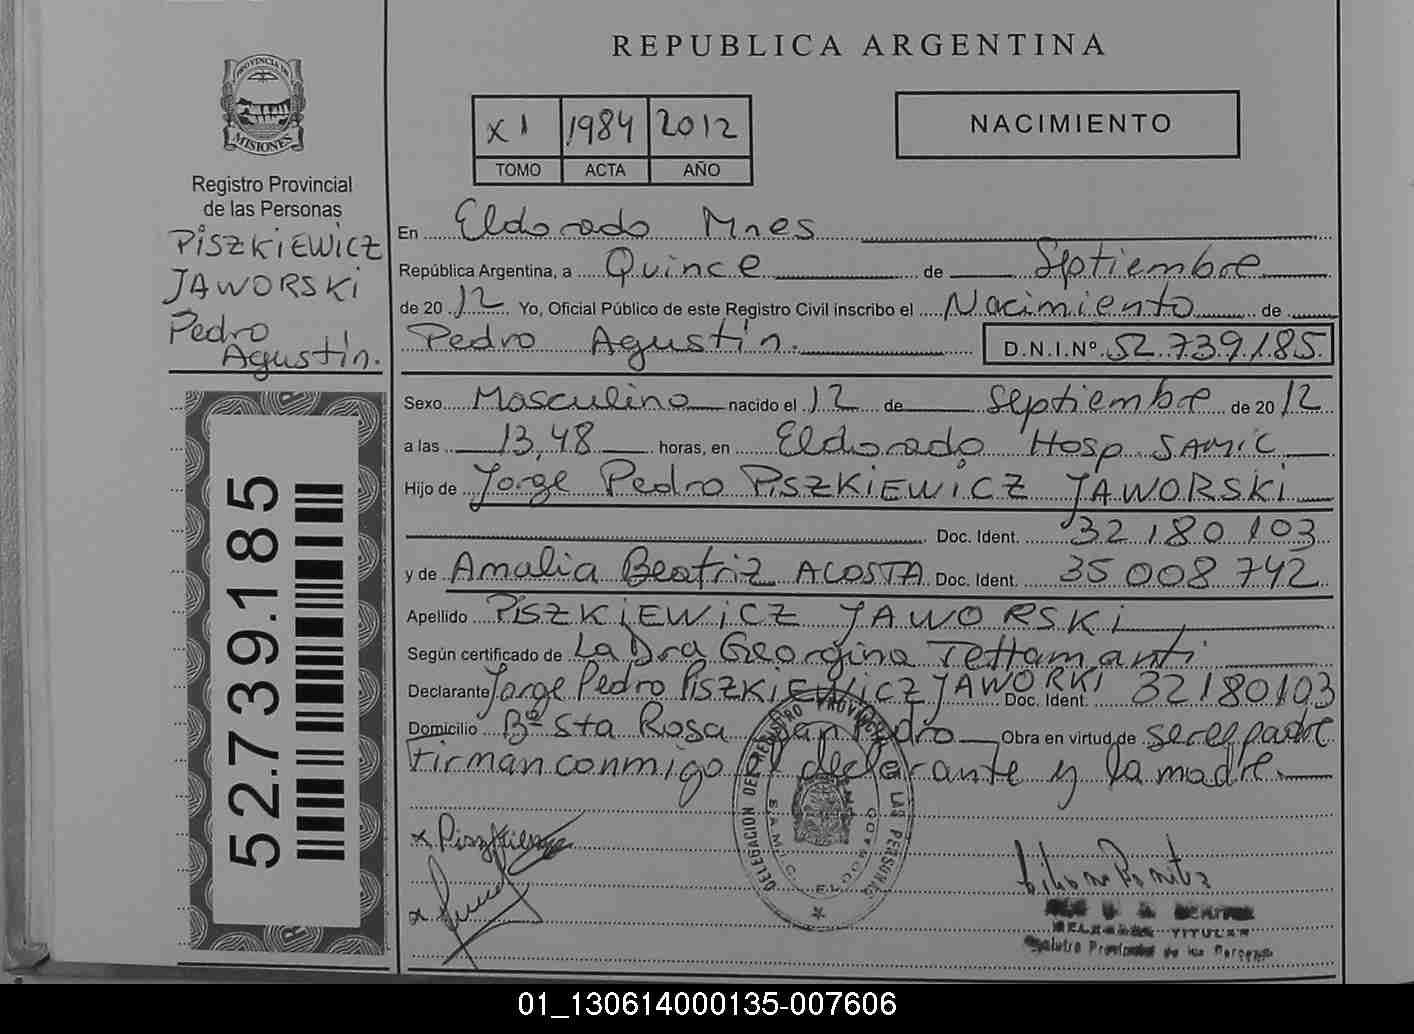 REPUBLICA ARGENTINA
PROVINCIA DE
MISIONES
Registro Provincial
de las Personas
PISZKIEWICZ
JAWORSKI
Pedro
Agustín.
52.739.185
X1 1984 2012
TOMO ACTA AÑO
NACIMIENTO
En Eldorado Mnes
República Argentina, a Quince de Septiembre
de 2012 Yo, Oficial Público de este Registro Civil inscribo el Nacimiento de
Pedro Agustín. D.N.I.Nº 52.739.185
Sexo Masculino nacido el 12 de Septiembre de 2012
a las 13,48 horas, en Eldorado Hosp SAMIC
Hijo de Jorge Pedro PISZKIEWICZ JAWORSKI
Doc. Ident. 32 180 103
y de Amalia Beatriz ACOSTA Doc. Ident. 35 008 742
Apellido PISZKIEWICZ JAWORSKI
Según certificado de La Dra Georgina Tettamanti
Declarante Jorge Pedro PISZKIEWICZ JAWORKI Doc. Ident. 32180103
Domicilio Bº Sta Rosa San Pedro Obra en virtud de ser el padre
Firman conmigo el declarante y la madre.
DELEGACION DEL REGISTRO PROVINCIAL DE LAS PERSONAS
S.A.M.I.C. ELDORADO
x
x
TITULAR
Registro Provincial de las Personas
01_130614000135-007606